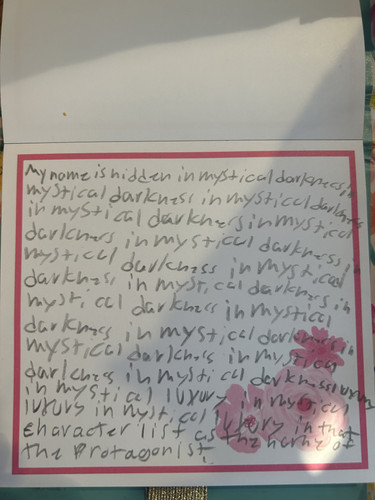 My name is hidden in mystical darkness in
mystical darkness in mystical darkness
in mystical darkness in mystical
darkness in mystical darkness in
mystical darkness in mystical
darkness in mystical darkness in
mystical darkness in mystical
darkness in mystical darkness in
mystical darkness in mystical
darkness in mystical darkness luxury
in mystical luxury in mystical
luxury in mystical luxury in that
character list as the name of
the Protagonist.